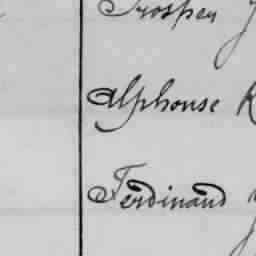 Prosper
Alphonse
Ferdinand